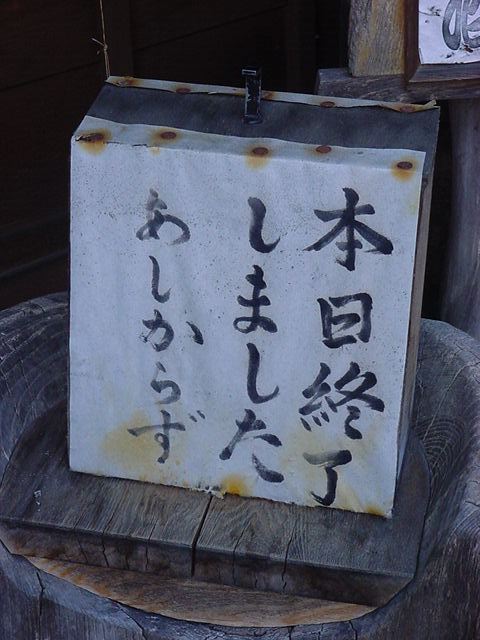 本日終了
しました
あしからず